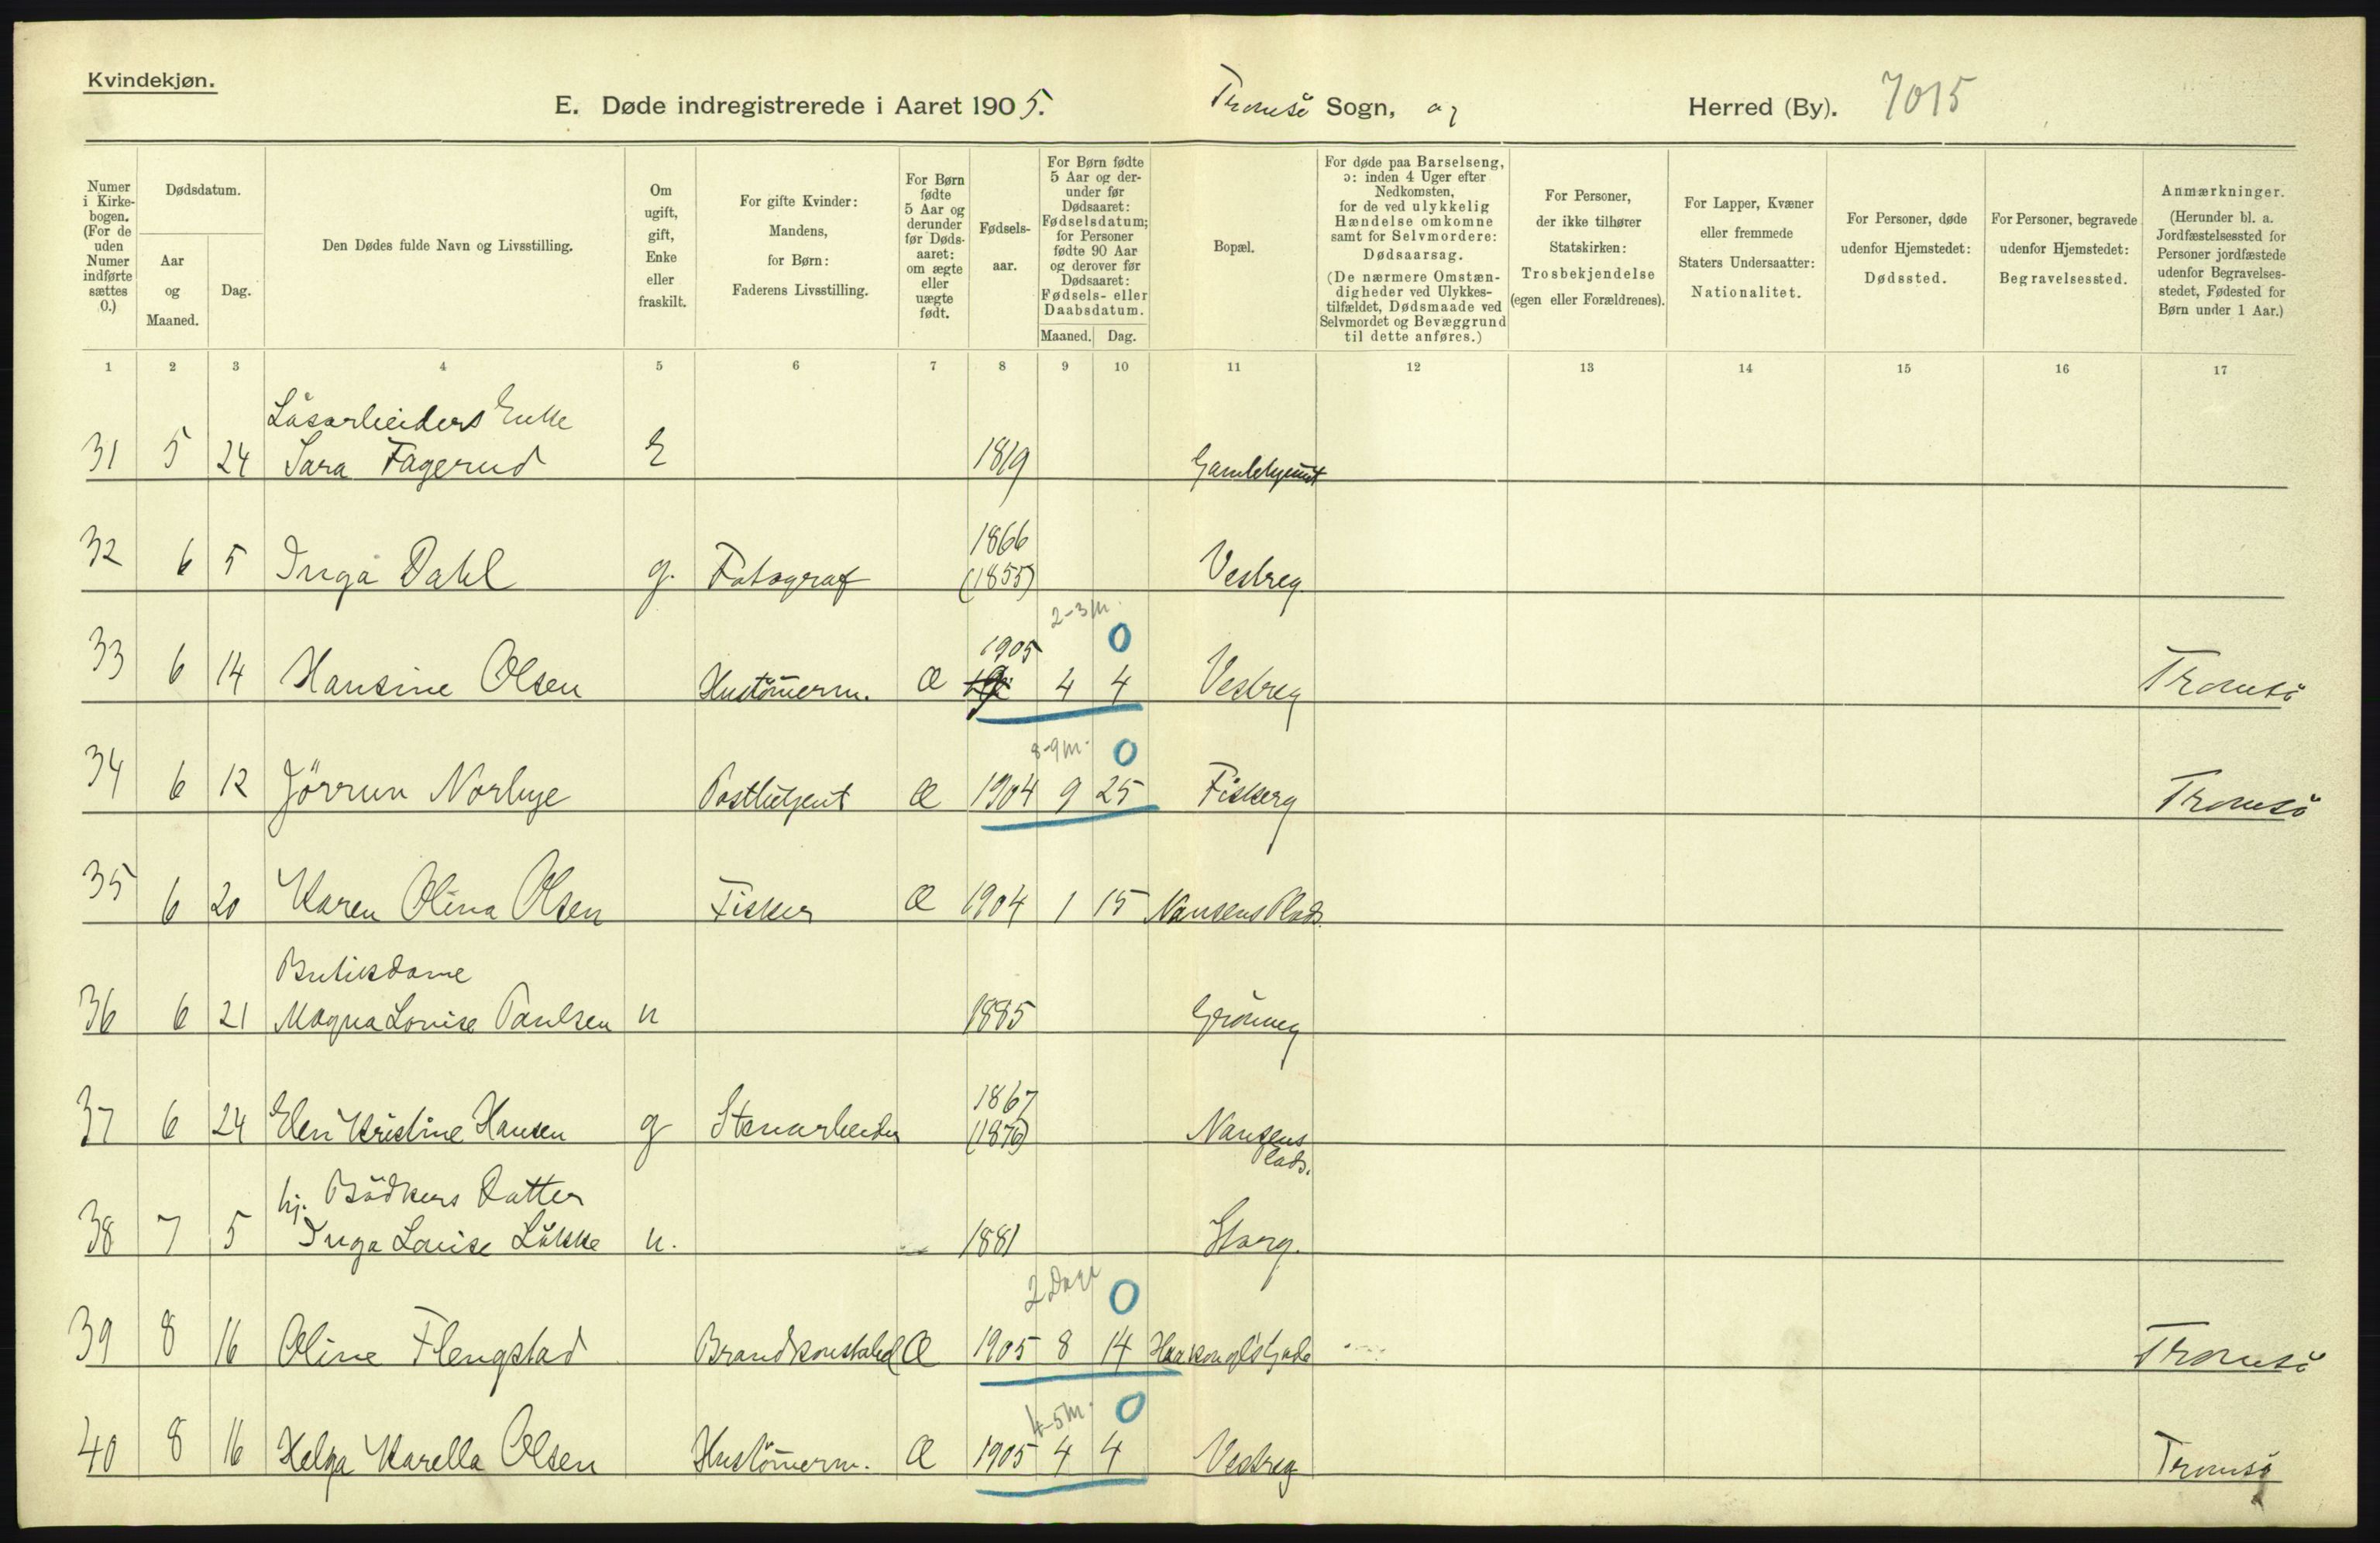 Kvindekjøn.
E. Døde indregistrerede i Aaret 1905. Tromsö Sogn, og Herred (By). 7015
Numer i Kirkebogen. (For de uden Numer indførte sættes 0.)
Dødsdatum.
Aar og Maaned.
Dag.
Den Dødes fulde Navn og Livsstilling.
Om ugift, gift, Enke eller fraskilt.
For gifte Kvinder: Mandens, for Børn: Faderens Livsstilling.
For Børn fødte 5 Aar og derunder før Dødsaaret: om ægte eller uægte født.
Fødselsaar.
For Børn fødte 5 Aar og derunder før Dødsaaret: Fødselsdatum; for Personer fødte 90 Aar og derover før Dødsaaret: Fødsels- eller Daabsdatum.
Maaned. Dag.
Bopæl.
For døde paa Barselseng, ɔ: inden 4 Uger efter Nedkomsten, for de ved ulykkelig Hændelse omkomne samt for Selvmordere: Dødsaarsag. (De nærmere Omstændigheder ved Ulykkestilfældet, Dødsmaade ved Selvmordet og Bevæggrund til dette anføres.)
For Personer, der ikke tilhører Statskirken: Trosbekjendelse (egen eller Forældrenes).
For Lapper, Kvæner eller fremmede Staters Undersaatter: Nationalitet.
For Personer, døde udenfor Hjemstedet: Dødssted.
For Personer, begravede udenfor Hjemstedet: Begravelsessted.
Anmærkninger. (Herunder bl. a. Jordfæstelsessted for Personer jordfæstede udenfor Begravelsesstedet, Fødested for Børn under 1 Aar.)
1 2 3 4 5 6 7 8 9 10 11 12 13 14 15 16 17
Läsarbeiders Enke
31 5 24 Sara Fagerud E 1819 Gamlehjemt
1866
32 6 5 Inga Dahl g. Fotograf (1855) Vestreg.
2-3 m. 0
1905
33 6 14 Hansine Olsen Hustömerm. Æ 4 4 Vestreg Tromsö
8-9 m. 0
34 6 12 Jörrun Norbye Postbetjent Æ 1904 9 25 Fiskerg Tromsö
35 6 20 Karen Olina Olsen Fisker Æ 1904 1 15 Nansens Plads.
Butiksdame
36 6 21 Magna Lovise Paulsen u 1885 Grönneg
1867
37 6 24 Elen Kristine Hansen g Stenarbeider (1876) Nansens
Plads.
hj. Bödkers Datter
38 7 5 Inga Lovise Lökke u. 1881 Storg.
2 Dage 0
39 8 16 Oline Flengstad Brandkonstabel Æ 1905 8 14 Haakon gl's Gade Tromsö
4-5 m. 0
40 8 16 Helga Karella Olsen Hustömerm. Æ 1905 4 4 Vestreg Tromsö